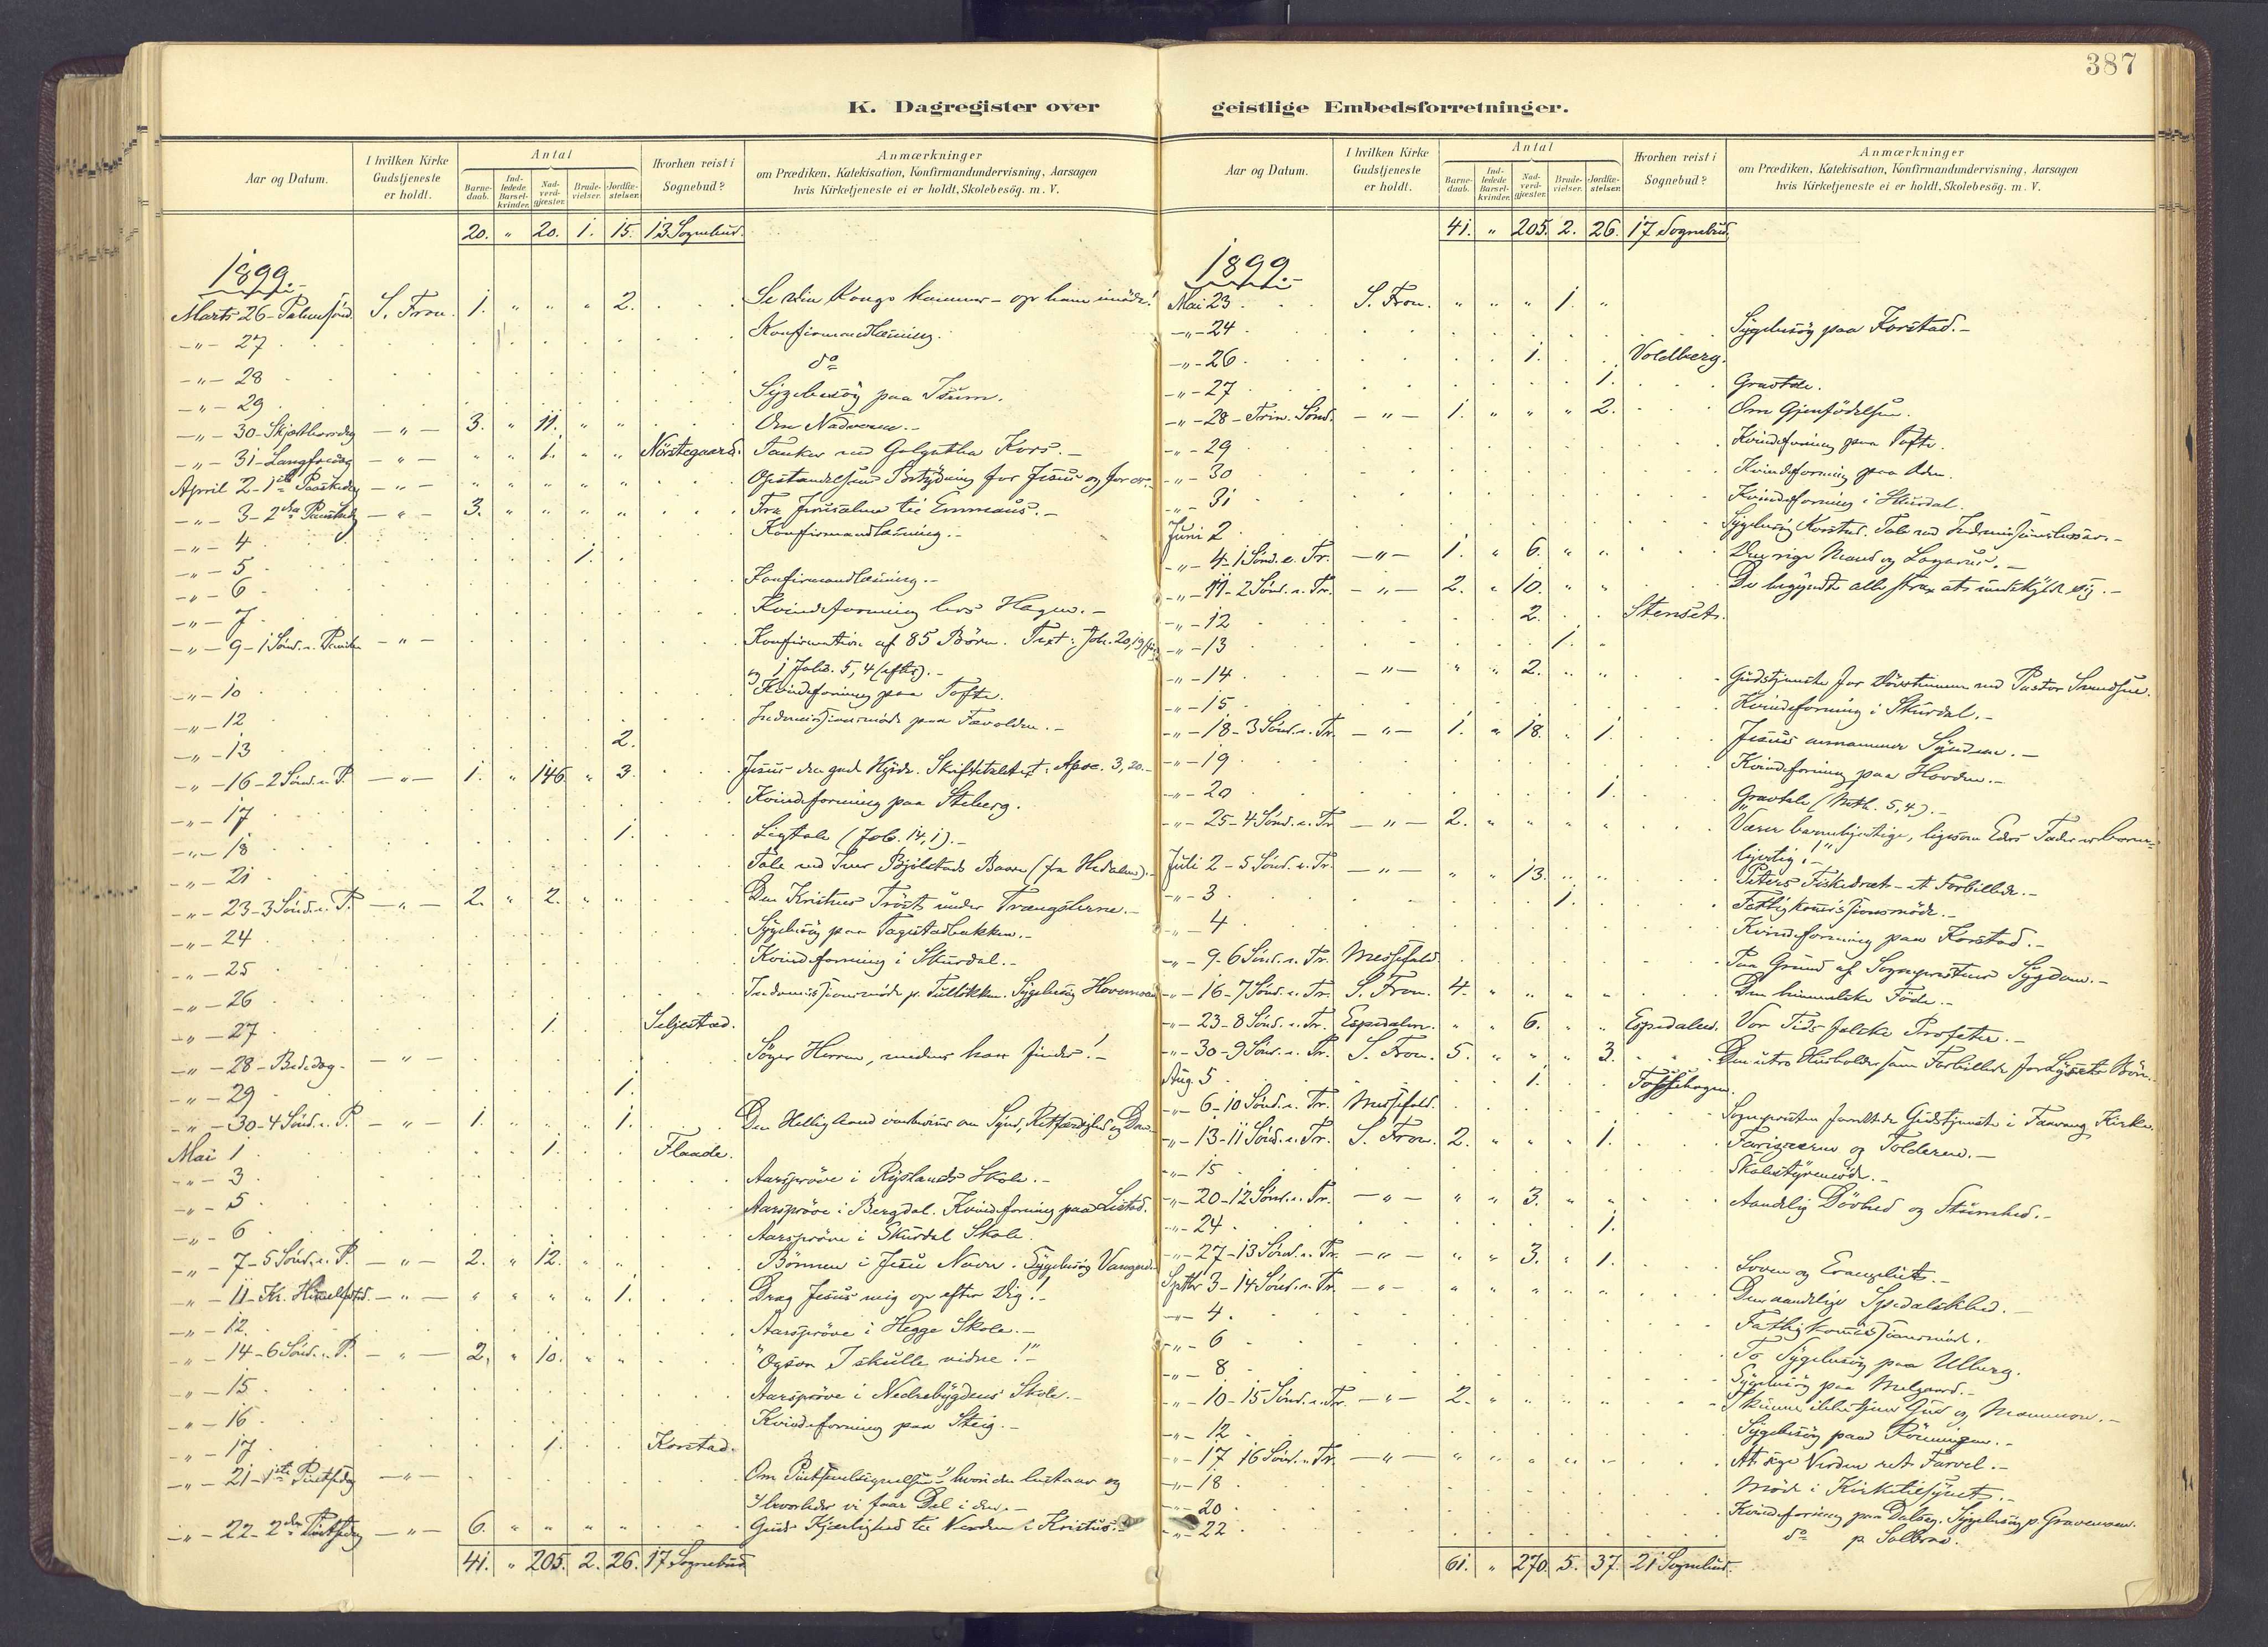 387
K. Dagregister over geistlige Embedsforretninger.
Aar og Datum. I hvilken Kirke Gudstjeneste er holdt. Antal Barnedaab. Indledede Barselkvinder. Nadverdgjæster. Brudevielser. Jordfæstelser. Hvorhen reist i Sognebud? Anmærkninger om Prædiken, Katekisation, Konfirmandundervisning, Aarsagen hvis Kirketjeneste ei er holdt, Skolebesög. m. V.
20. " 20. 1. 15. 13 Sognebud.
1899.
Marts 26 - Palmesönd. S. Fron. 1. " " " 2. Se din Konge kommer - op ham imöde!
-"- 27 Konfirmandlæsning.
-"- 28 do
-"- 29 Sygebesög paa Isum.
-"- 30 - Skjærthorsdag -"- 3. " 11. " " Om Nadveren. -
-"- 31 - Langfredag -"- " " 1. " " Nörstegaard. Tanker ved Golgatha Kors. -
April 2 - 1ste Paaskedag -"- " " " " " Opstandelsens Betydning for Jesus og for os. -
-"- 3 - 2den Paaskedag -"- 3. " " " " Fra Jerusalem til Emmaus. -
-"- 4 Konfirmandlæsning. -
-"- 5 1.
-"- 6 Konfirmandlæsning. -
-"- 7 Kvindeforening hos Hagen. -
-"- 9 - 1 Sönd. e. Paaske -"- Konfirmation af 85 Börn. Text: Joh. 20,19
og 1 Joh. 5,4 (efter). -
-"- 10 Kvindeforening paa Tofte.
-"- 12 Indremissionsmöde paa
-"- 13 2.
-"- 16 - 2 Sönd. e. P. -"- 1. " 146 " 3. Jesus den gode Hyrde. Skriftetaletext: Apoc. 3,20. -
-"- 17 Kvindeforening paa Steberg.
-"- 18 1. Ligtale (Job. 14,1). -
-"- 21 Tale ved Iver Bjölstads Baare (fra Hedalen). -
-"- 23 - 3 Sönd. e. P. -"- 2. " 2. " " Den Kristnes Tröst under Trængslerne. -
-"- 24 Sygebesög paa
-"- 25 Kvindeforening i Skurdal. -
-"- 26 Indremissionsmöde p. Tullökken. Sygebesög
-"- 27 1. Seljestad.
-"- 28 - Bededag -"- Söger Herren, medens han findes! -
-"- 29 1.
-"- 30 - 4 Sönd. e. P. -"- 1. 1. Den Hellig Aand overbeviser om Synd, Retfærdighed og Dom -
Mai 1 1. Flaade.
-"- 3 Aarspröve i Ryslands Skole. -
-"- 5 Aarspröve i Bergdal. Kvindeforening paa Listad.
-"- 6 Aarspröve i Skurdal Skole.
-"- 7 - 5 Sönd. e. P. -"- 2. " 12. " " Bönnen i Jesu Navn. Sygebesög
-"- 11 - Kr. Himmelfartsd. -"- " " " " 1. Drag Jesus mig op efter Dig! -
-"- 12. Aarspröve i Hegge Skole. -
-"- 14 - 6 Sönd. e. P. -"- 2. " 10. " " "Ogsaa I skulle vidne!" -
-"- 15 Aarspröve i Nedrebygdens Skole. -
-"- 16 Kvindeforening paa Steig. -
-"- 17 1. Korstad.
-"- 21 - 1ste Pintsedag -"- Om Pintsevelsignelsen: hvori den bestaar og
hvorledes vi faar Del i den. -
-"- 22 - 2den Pintsedag -"- 6. " " " " Guds Kjærlighed til Verden i Kristus. -
41. " 205. 2. 26. 17 Sognebud
Aar og Datum. I hvilken Kirke Gudstjeneste er holdt. Antal Barnedaab. Indledede Barselkvinder. Nadverdgjæster. Brudevielser. Jordfæstelser. Hvorhen reist i Sognebud? Anmærkninger om Prædiken, Katekisation, Konfirmandundervisning, Aarsagen hvis Kirketjeneste ei er holdt, Skolebesög. m. V.
41. " 205. 2. 26. 17 Sognebud.
1899.
Mai 23 S. Fron. " " " 1. "
-"- 24 Sygebesög paa Korstad. -
-"- 26 1. Voldberg.
-"- 27 1. Gravtale.
-"- 28 - Trin. Sönd. -"- 1. " " " 2. Om Gjenfödelsen.
-"- 29 Kvindeforening paa Tofte.
-"- 30 Kvindeforening paa
-"- 31 Kvindeforening i Skurdal.
Juni 2 Sygebesög Korstad. Tale ved
-"- 4 - 1 Sönd. e. Tr. -"- 1. " 6. " " Den rige Mand og Lazarus. -
-"- 11 - 2 Sönd. e. Tr. -"- 2. " 10. " " De begyndte alle strax at undskylde sig. -
-"- 12 2. Stenset.
-"- 13 1.
-"- 14 -"- " " 2. " " Gudstjeneste for Dövstumme ved Pastor Svendsen.
-"- 15 Kvindeforening i Skurdal. -
-"- 18 - 3 Sönd. e. Tr. -"- 1. " 18. " 1. Jesus annammer Syndere. -
-"- 19 Kvindeforening paa Hovden. -
-"- 20 1. Gravtale (Mth. 5,4). -
-"- 25 - 4 Sönd. e. Tr. -"- 2. " " " " "Værer barmhjertige, ligesom Eders Fader er barm-
hjertig!" -
Juli 2 - 5 Sönd. e. Tr. -"- " " 13. " " Peters Fiskedræt - et Forbillede. -
-"- 3 1. Fattigkommissionsmöde. -
-"- 4 Kvindeforening paa Korstad. -
-"- 9 - 6 Sönd. e. Tr. Messefald. Paa Grund af Sognepræstens Sygdom. -
-"- 16 - 7 Sönd. e. Tr. S. Fron. 4. " " " " Den himmelske Föde. -
-"- 23 - 8 Sönd. e. Tr. Espedalen. " " 6. " " Espedalen. Vor Tids falske Profeter. -
-"- 30 - 9 Sönd. e. Tr. S. Fron. 5. " " " 3. Den utro Husholder som Forbillede for Lysets Börn.
Aug. 5 1. Fossehagen.
-"- 6 - 10 Sönd. e. Tr. Messefald. Sognepræsten forrettede Gudstjeneste i Faavang Kirke.
-"- 13 - 11 Sönd. e. Tr. S. Fron. 2. " " " 1. Farisæeren og Tolderen. -
-"- 15 Skolestyremöde. -
-"- 20 - 12 Sönd. e. Tr. -"- " " 3. " " Aandelig Dövhed og Stumhed. -
-"- 24 1.
-"- 27 - 13 Sönd. e. Tr. -"- " " 3. " 1. Loven og Evangeliet. -
Septbr 3 - 14 Sönd. e. Tr. -"- " " " " " Den aandelige Spedalskhed. -
-"- 4 Fattigkommissionsmöde. -
-"- 6 To Sygebesög paa Ulberg.
-"- 8 Sygebesög paa Melgaard. -
-"- 10 - 15 Sönd. e. Tr. -"- 2. " " " " I kunne ikke tjene Gud og Mammon. -
-"- 12 Sygebesög paa
-"- 17 16 Sönd. e. Tr -"- " " " " " At sige Verden ret Farvel. -
-"- 18 Möde i Kirketilsynet. -
-"- 20 Kvindeforening paa Sygebesög p.
-"- 22 do p. Solbraa.
61. " 270. 5. 37. 21 Sognebud.